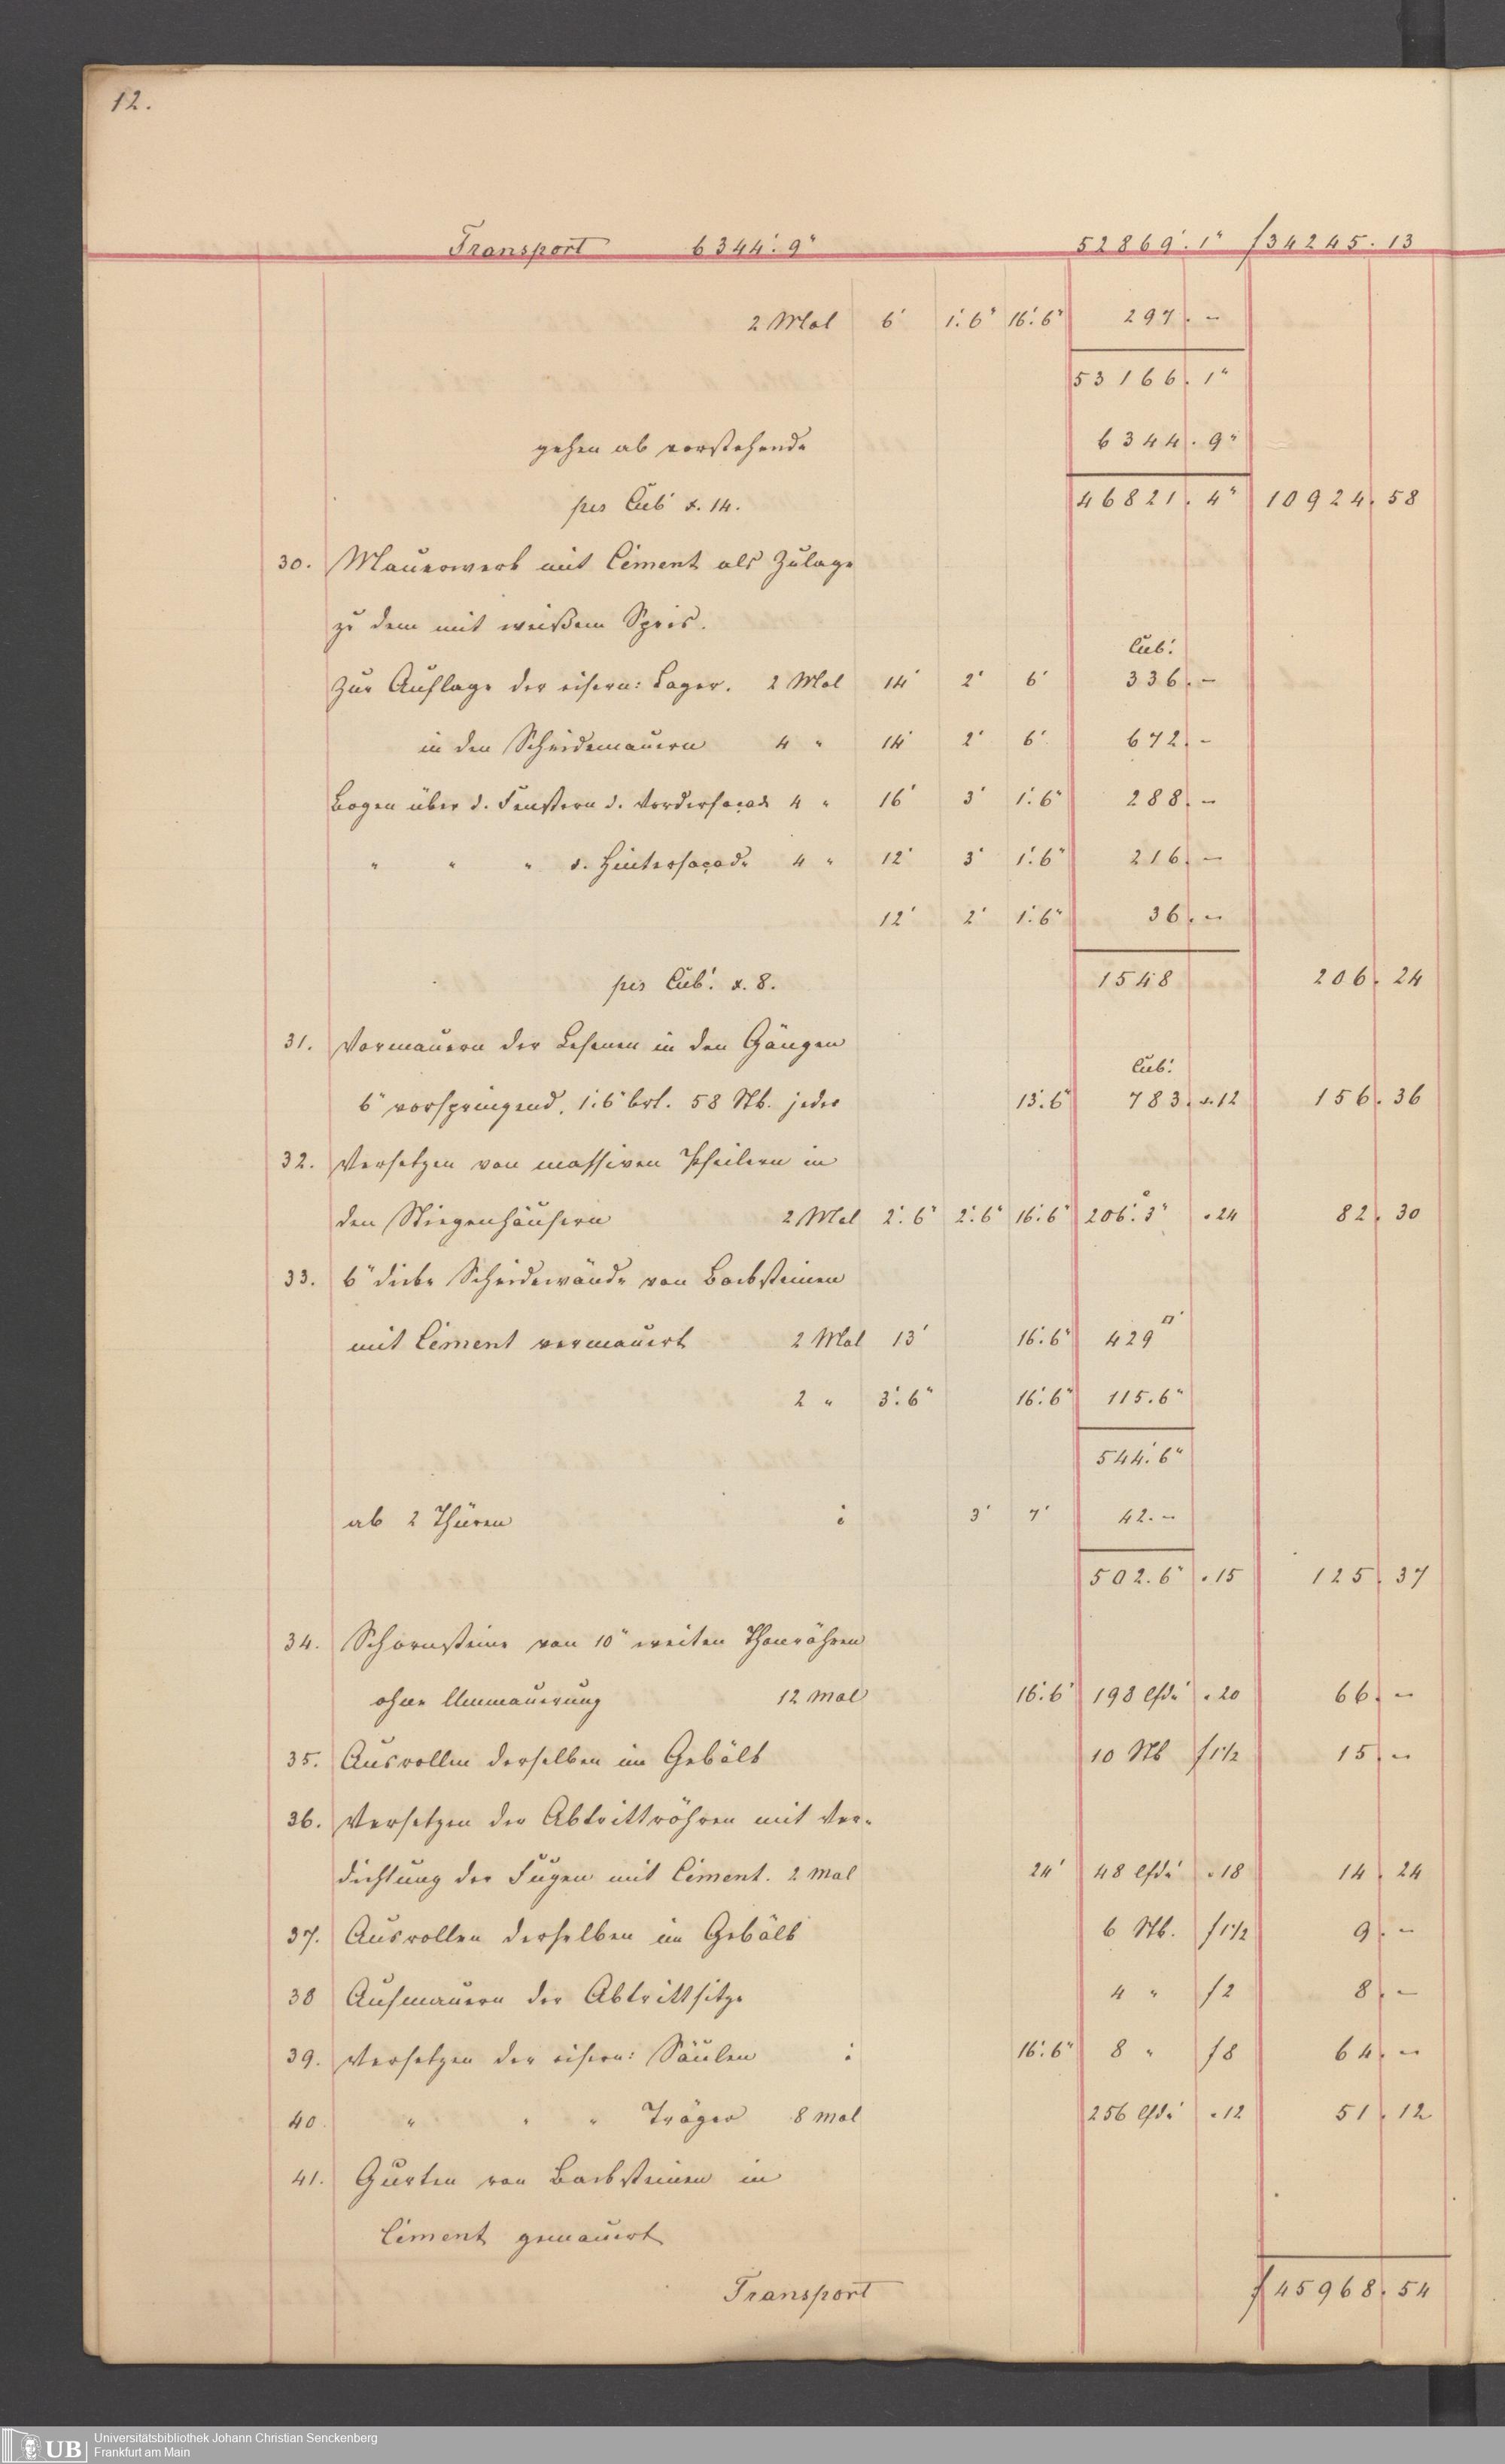 12.
Transport 6344'. 9" 52869'. 1" f 34245. 13
2 Mal 6' 1'. 6" 16'. 6" 297. –
53166. 1"
gehen ab vorstehende 6344. 9"
per Cub' x. 14. 46821. 4" 10924. 58
30. Mauerwerk mit Ciment als Zulage
zu dem mit weißem Speis.
Cub.'
Zur Auflage der eisern: Lager. 2 Mal 14' 2' 6' 336. –
in den Scheidemauern 4 " 14' 2' 6' 672. –
Bogen über d. Fenstern d. Vorderfaçade 4 " 16' 3' 1'. 6" 288. –
" " " d. Hinterfaçade 4 " 12' 3' 1'. 6" 216. –
12' 2' 1'. 6" 36. –
per Cub.' x. 8. 1548 206. 24
31. Vormauern der Lesenen in den Gängen
Cub.'
6" vorspringend, 1'. 6" brt. 58 Stk. jeder 13'. 6" 783. x. 12 156. 36
32. Versetzen von massiven Pfeilern in
den Stiegenhäusern 2 Mal 2'. 6" 2'. 6" 16'. 6" 206'. 3" " 24 82. 30
33. 6" dicke Scheidewände von Backsteinen
mit Ciment vermauert 2 Mal 13' 16'. 6" 429 □'
2 " 3'. 6" 16'. 6" 115. 6"
544'. 6"
ab 2 Thüren : 3' 7' 42. –
502. 6" " 15 125. 37
34. Schornsteine von 10" weiten Thonröhren
ohne Ummauerung 12 mal 16'. 6" 198 lfde' " 20 66. –
35. Ausrollen derselben im Gebälk 10 Stk f 1½ 15. –
36. Versetzen der Abtrittröhren mit Ver-
dichtung der Fugen mit Ciment. 2 mal 24' 48 lfde' " 18 14. 24
37. Ausrollen derselben im Gebälk 6 Stk. f 1½ 9. –
38 Aufmauern der Abtrittsitze 4 " f 2 8. –
39. Versetzen der eisern: Säulen : 16'. 6" 8 " f 8 64. –
40. " " " Träger 8 mal 256 lfde' " 12 51. 12
41. Gurten von Backsteinen in
Ciment gemauert
Transport f 45968. 54
UB Universitätsbibliothek Johann Christian Senckenberg
Frankfurt am Main